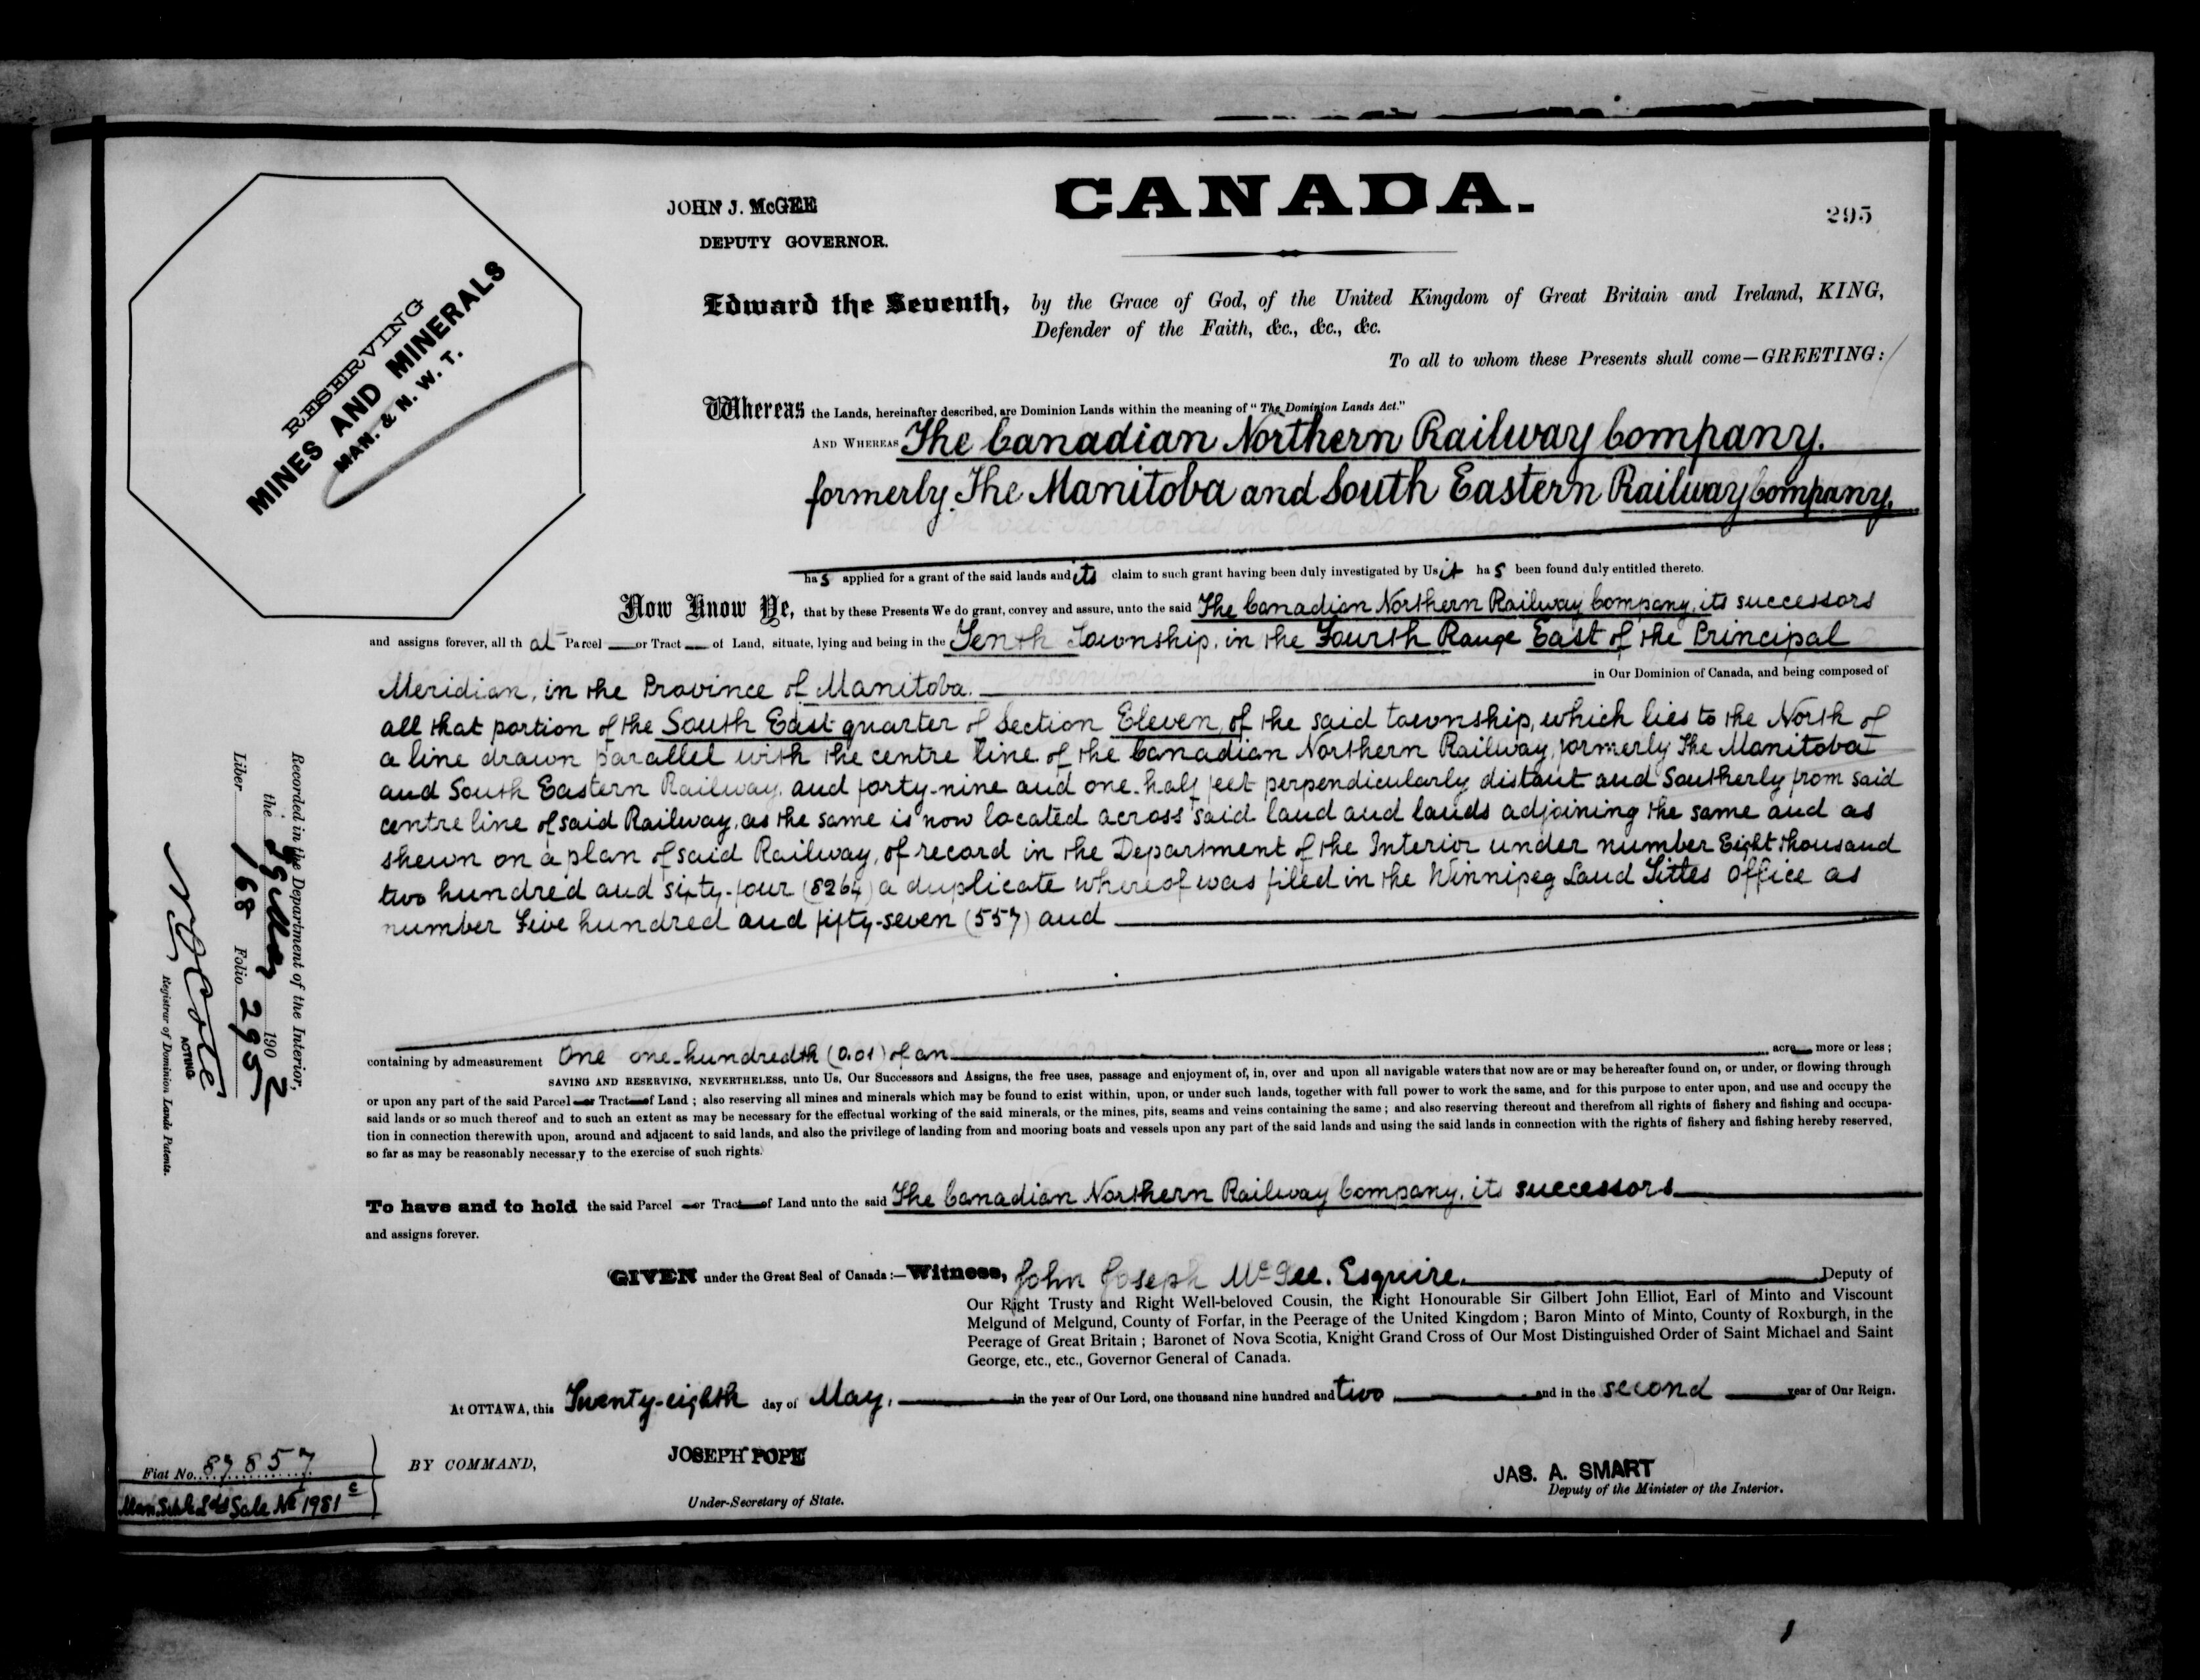 CANADA.
295
JOHN J. McGEE
DEPUTY GOVERNOR.
RESERVING
MINES AND MINERALS
MAN. & N. W. T.
Edward the Seventh, by the Grace of God, of the United Kingdom of Great Britain and Ireland, KING,
Defender of the Faith, &c., &c., &c.
To all to whom these Presents shall come—GREETING:
Whereas the Lands, hereinafter described, are Dominion Lands within the meaning of "The Dominion Lands Act."
AND WHEREAS The Canadian Northern Railway Company.
formerly The Manitoba and South Eastern Railway Company,
has applied for a grant of the said lands and its claim to such grant having been duly investigated by Us it has been found duly entitled thereto.
Now Know Ye, that by these Presents We do grant, convey and assure, unto the said The Canadian Northern Railway Company, its successors
and assigns forever, all that Parcel or Tract of Land, situate, lying and being in the Tenth Township, in the Fourth Range East of the Principal
Meridian, in the Province of Manitoba. in Our Dominion of Canada, and being composed of
all that portion of the South East quarter of Section Eleven, of the said township, which lies to the North of
a line drawn parallel with the centre line of the Canadian Northern Railway, formerly The Manitoba
and South Eastern Railway, and forty-nine and one-half feet perpendicularly distant and Southerly from said
centre line of said Railway, as the same is now located across said land and lands adjoining the same and as
shewn on a plan of said Railway, of record in the Department of the Interior under number Eight thousand
two hundred and sixty-four (8264) a duplicate whereof was filed in the Winnipeg Land Titles Office as
number Five hundred and fifty-seven (557) and
containing by admeasurement One one-hundredth (0.01) of an acre more or less;
SAVING AND RESERVING, NEVERTHELESS, unto Us, Our Successors and Assigns, the free uses, passage and enjoyment of, in, over and upon all navigable waters that now are or may be hereafter found on, or under, or flowing through
or upon any part of the said Parcel or Tract of Land; also reserving all mines and minerals which may be found to exist within, upon, or under such lands, together with full power to work the same, and for this purpose to enter upon, and use and occupy the
said lands or so much thereof and to such an extent as may be necessary for the effectual working of the said minerals, or the mines, pits, seams and veins containing the same; and also reserving thereout and therefrom all rights of fishery and fishing and occupa-
tion in connection therewith upon, around and adjacent to said lands, and also the privilege of landing from and mooring boats and vessels upon any part of the said lands and using the said lands in connection with the rights of fishery and fishing hereby reserved,
so far as may be reasonably necessary to the exercise of such rights.
To have and to hold the said Parcel or Tract of Land unto the said The Canadian Northern Railway Company, its successors
and assigns forever.
GIVEN under the Great Seal of Canada:—Witness, John Joseph McGee, Esquire, Deputy of
Our Right Trusty and Right Well-beloved Cousin, the Right Honourable Sir Gilbert John Elliot, Earl of Minto and Viscount
Melgund of Melgund, County of Forfar, in the Peerage of the United Kingdom; Baron Minto of Minto, County of Roxburgh, in the
Peerage of Great Britain; Baronet of Nova Scotia, Knight Grand Cross of Our Most Distinguished Order of Saint Michael and Saint
George, etc., etc., Governor General of Canada.
At OTTAWA, this Twenty-eighth day of May, in the year of Our Lord, one thousand nine hundred and two and in the second year of Our Reign.
BY COMMAND,
JOSEPH POPE
Under-Secretary of State.
JAS. A. SMART
Deputy of the Minister of the Interior.
Recorded in the Department of the Interior,
the 1902
Liber 168 Folio 295
ACTING
Registrar of Dominion Lands Patents.
Fiat No. 87857
Sale No 1981 c